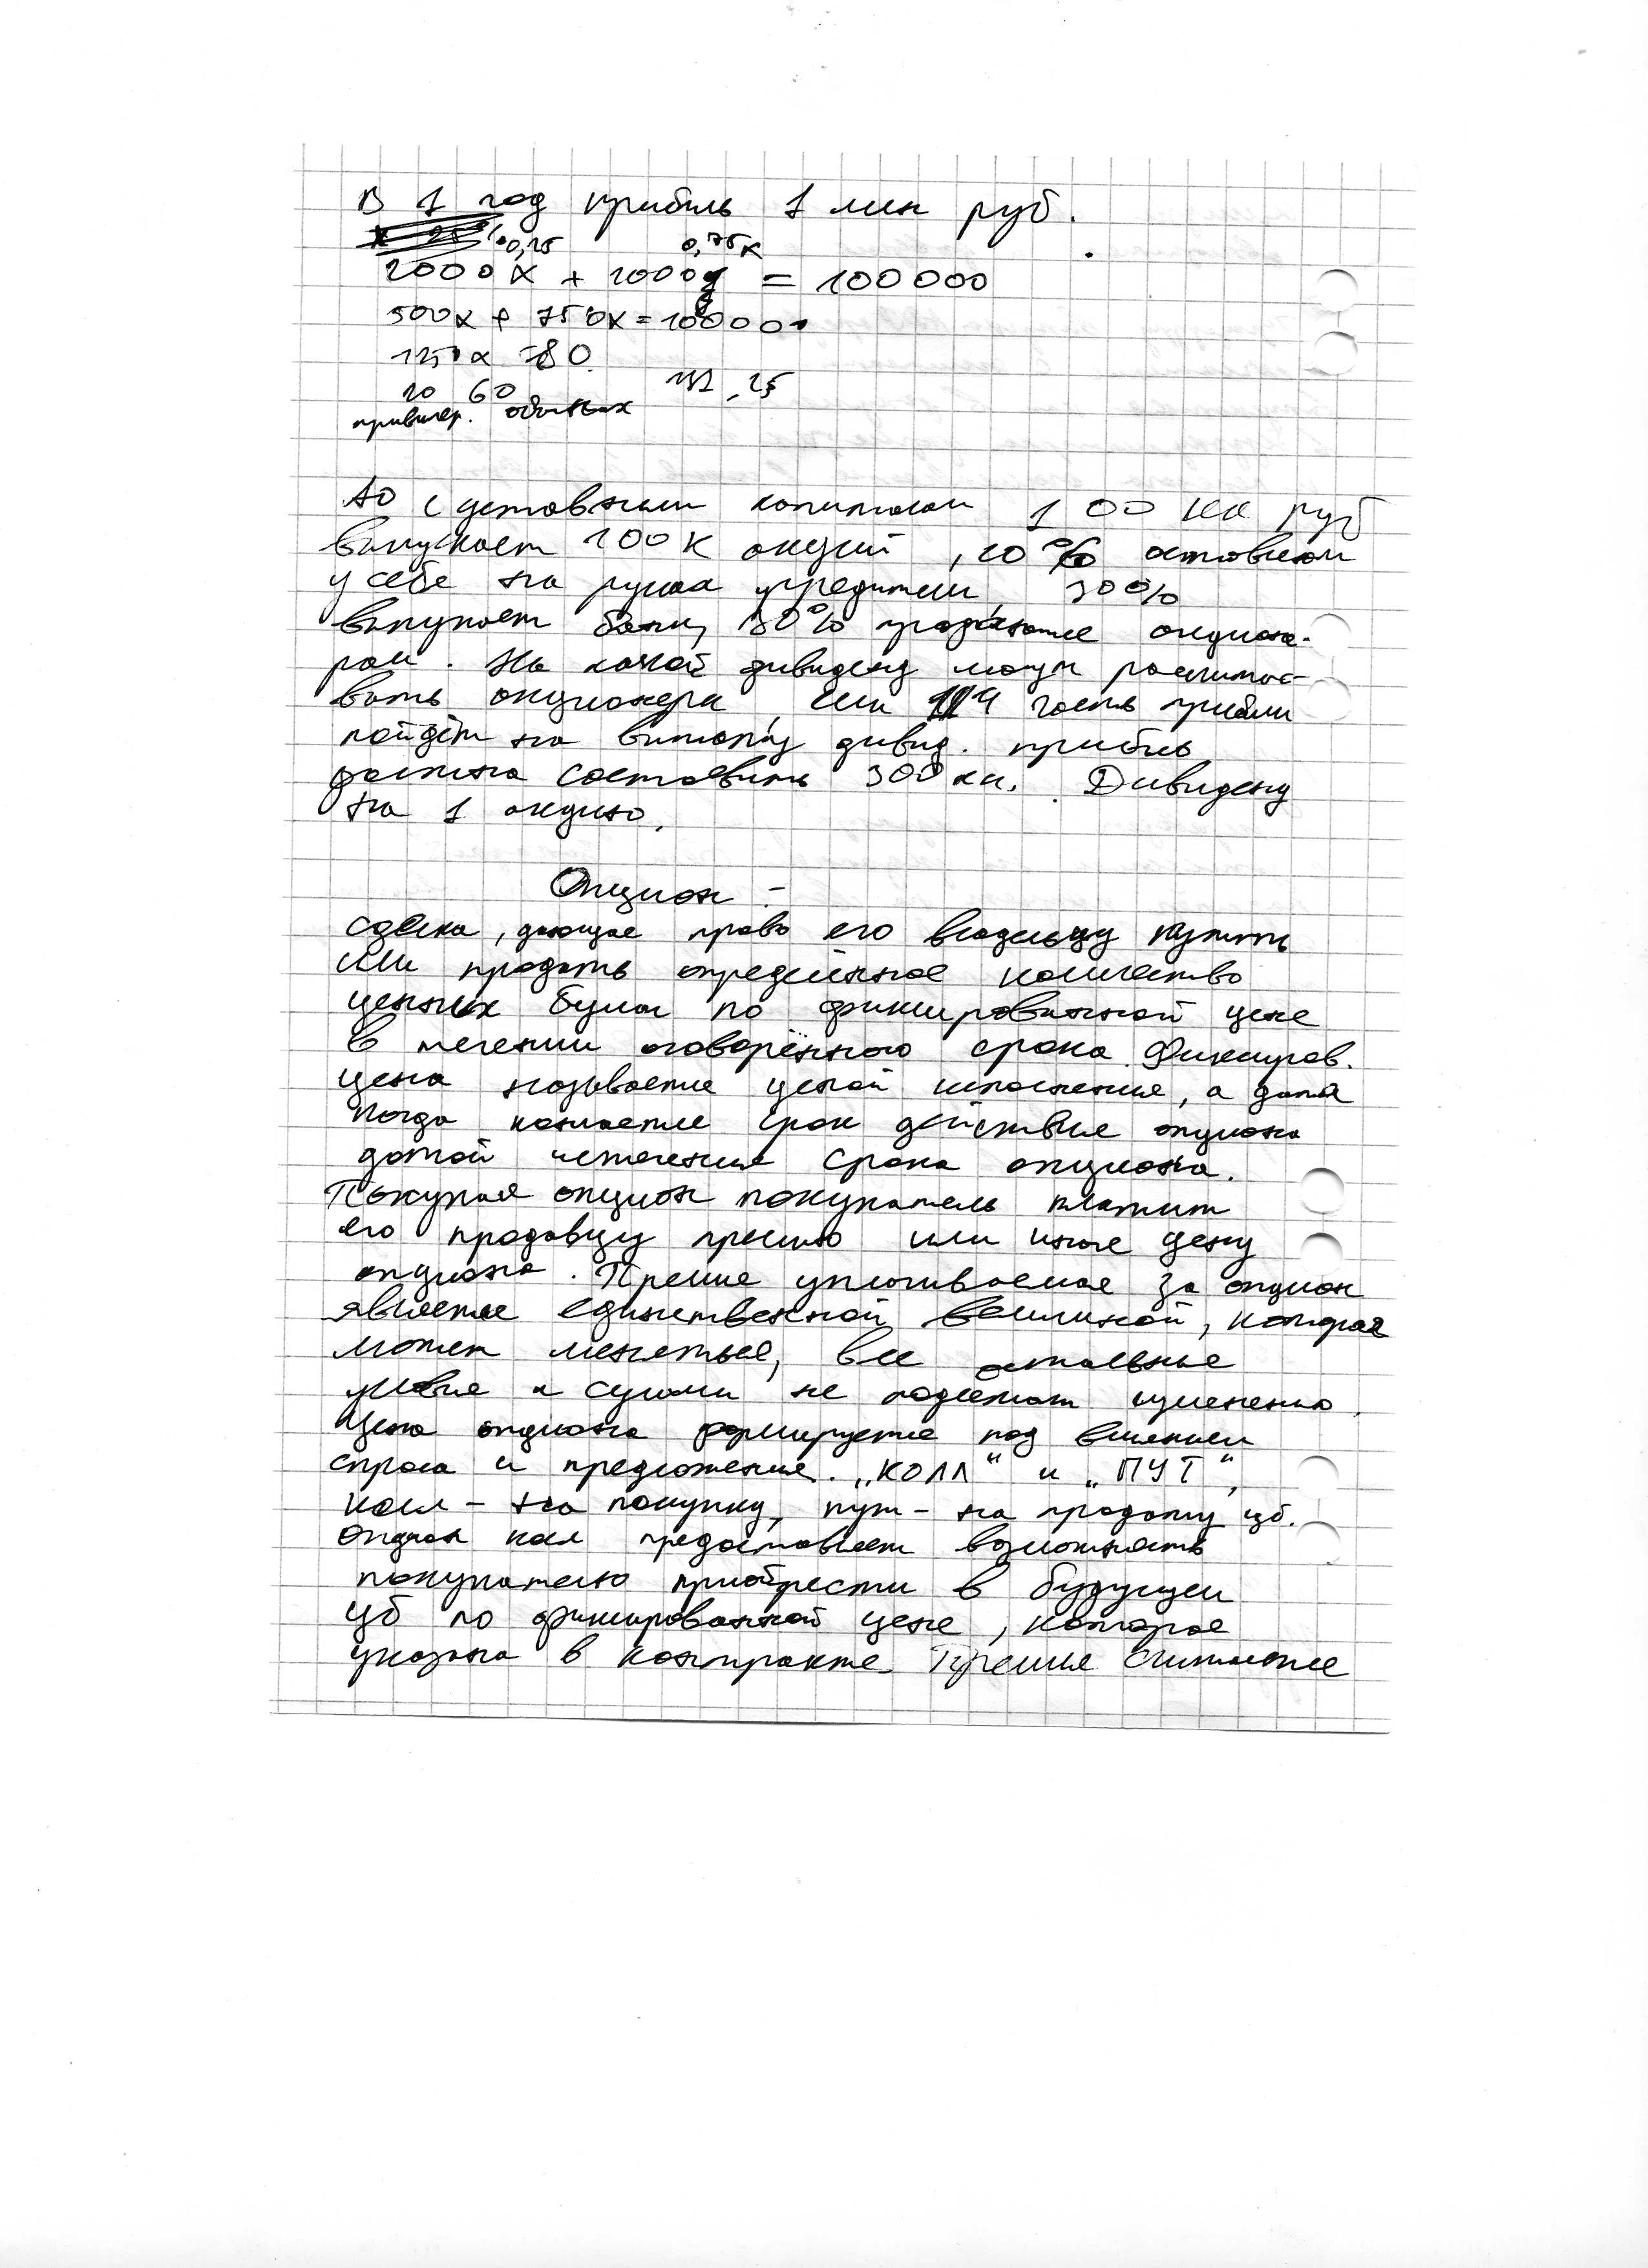 В 1 год прибыль 1 млн руб.
0,25 0,75x
2000x + 1000y = 100000
500x + 750x = 100000
1250x = 80
20 60
привилег. обычных
АО с уставным капиталом 100 кк руб
выпускает 100к акций, 20% оставляем
у себя на руках учредители, 30%
выкупает банк, 50% продаётся акционе-
рам. На какой дивиденд могут рассчиты-
вать акционеры, если 1/4 часть прибыли
пойдёт на выплату дивид. прибыль
должна составить 300 кк. Дивиденд
на 1 акцию.
Опцион -
сделка, дающая право его владельцу купить
или продать определённое количество
ценных бумаг по фиксированной цене
в течении оговорённого срока. Фиксиров.
цена называется ценой исполнения, а дата
когда кончается срок действия опциона
датой истечения срока опциона.
Покупая опцион покупатель платит
его продавцу премию или иначе цену
опциона. Премия уплачиваемая за опцион
является единственной величиной, которая
может меняться, все остальные
условия и суммы не подлежат изменению.
Цена опциона формируется под влиянием
спроса и предложения. „КОЛЛ“ и „ПУТ“,
колл - на покупку, пут - на продажу цб.
опцион кол предоставляет возможность
покупателю приобрести в будущем
цб по фиксированной цене, которая
указана в контракте. Премия считается